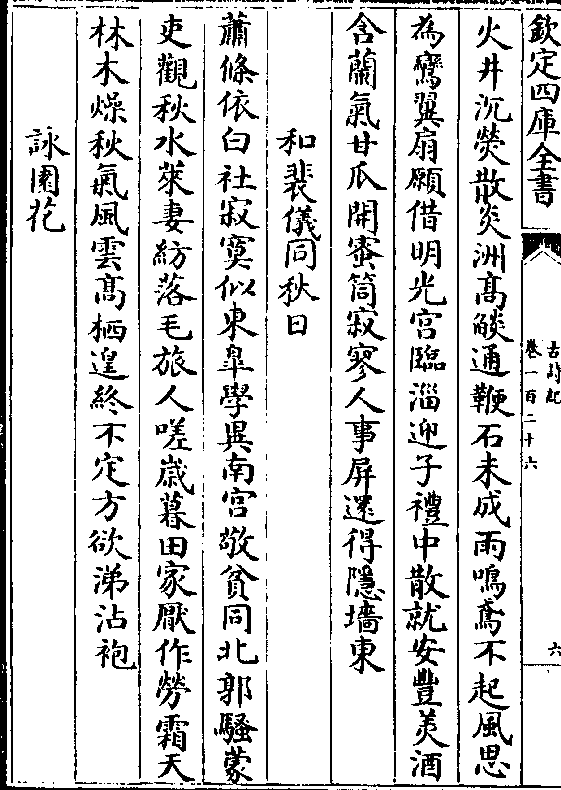 欽定四庫全書
古詩紀
卷一百二十六
六
火井沉熒散炎洲高燄通鞭石未成雨鳴鳶不起風思
為鸞翼扇願借明光宫臨淄迎子禮中散就安豐美酒
含蘭氣甘瓜開蜜筒寂寥人事屏還得隱墻東
和裴儀同秋日
蕭條依白社寂寞似東臯學異南宫敬貧同北郭騷蒙
吏觀秋水萊妻紡落毛旅人嗟歳暮田家厭作勞霜天
林木燥秋氣風雲髙栖遑終不定方欲涕沾袍
詠園花